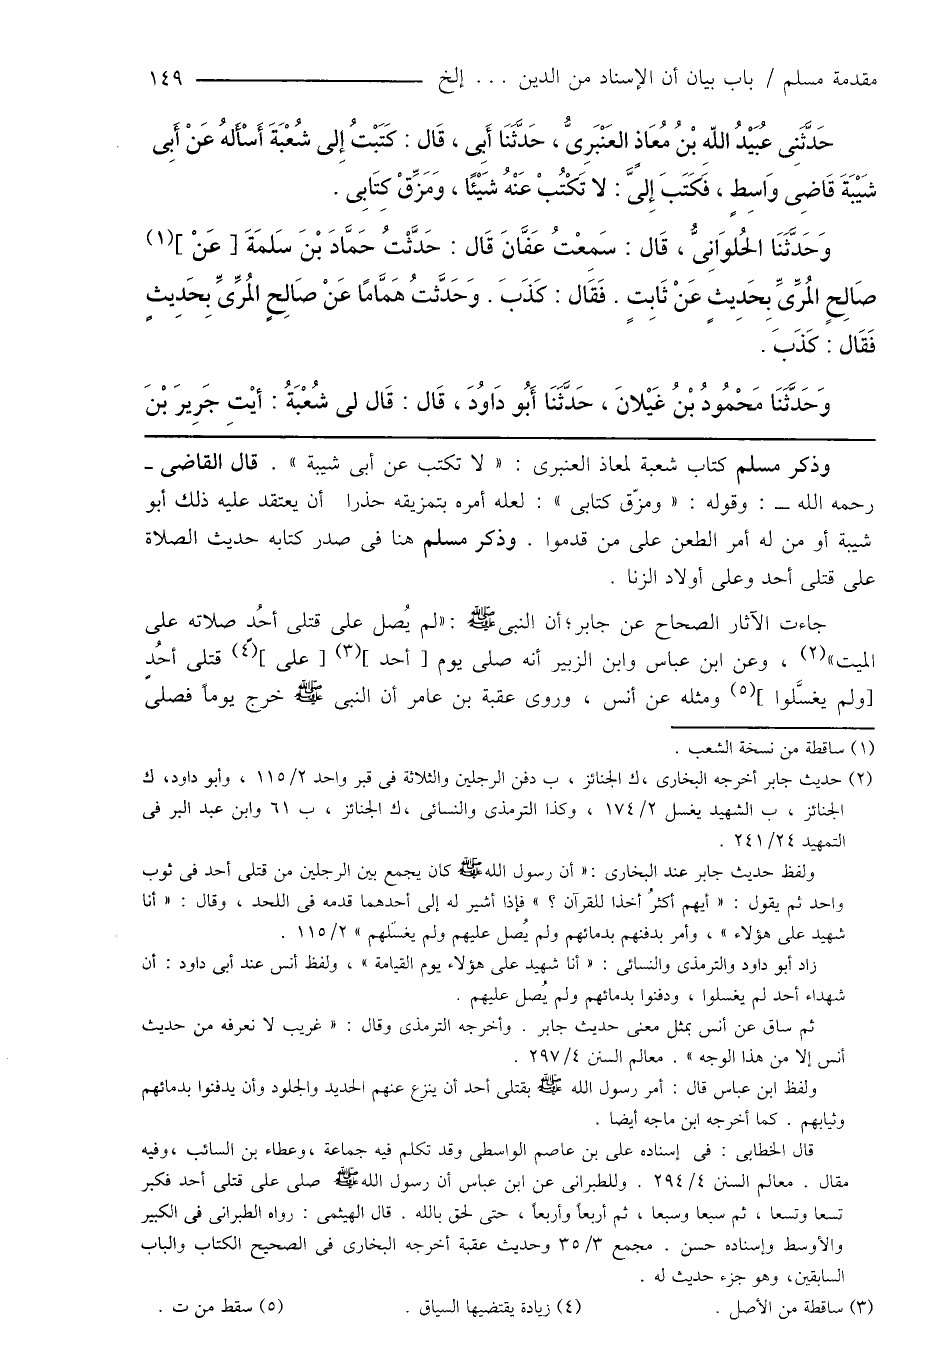 مقدمة مسلم / باب بيان أن الإسناد من الدين ... إلخ ــــــــــ ١٤٩
حَدَّثَنِى عُبَيْدُ اللّهِ بْنُ مُعَاذٍ العَنْبَرِىُّ ، حَدَّثَنَا أَبِى ، قَالَ : كَتَبْتُ إِلى شُعْبَةَ أَسْأَلهُ عَنْ أَبِى
شَيْبَةَ قَاضِى وَاسِطٍ ، فَكَتَبَ إِلىَّ : لا تَكْتُبْ عَنْهُ شَيْئًا ، وَمَزِّقْ كِتَابِى .
وَحَدَّثَنَا الحُلوَانِىُّ ، قَال : سَمِعْتُ عَفَّانَ قَال : حَدَّثْتُ حَمَّادَ بْنَ سَلمَةَ [ عَنْ ](١)
صَالِحٍ المُرِّىِّ بِحَدِيثٍ عَنْ ثَابِتٍ . فَقَال : كَذَبَ . وَحَدَّثْتُ هَمَّامًا عَنْ صَالِحٍ المُرِّىِّ بِحَدِيثٍ
فَقَال : كَذَبَ .
وَحَدَّثَنَا مَحْمُودُ بْنُ غَيْلانَ ، حَدَّثَنَا أَبُو دَاوُدَ ، قَال : قَال لِى شُعْبَةُ : أيْتِ جَرِيرَ بْنَ
وذكر مسلم كتاب شعبة لمعاذ العنبرى : « لا تكتب عن أبى شيبة » . قال القاضى ـ
رحمه الله ـ : وقوله : « ومزّق كتابى » : لعله أمره بتمزيقه حذرا أن يعتقد عليه ذلك أبو
شيبة أو من له أمر الطعن على من قدموا . وذكر مسلم هنا فى صدر كتابه حديث الصلاة
على قتلى أحد وعلى أولاد الزنا .
جاءت الآثار الصحاح عن جابر؛أن النبىﷺ :«لم يُصل على قتلى أحُدٍ صلاته على
الميت»(٢) ، وعن ابن عباس وابن الزبير أنه صلى يوم [ أحد ](٣) [ على ](٤) قتلى أحُدٍ
[ولم يغسَّلوا ](٥) ومثله عن أنس ، وروى عقبة بن عامر أن النبى ﷺ خرج يوماً فصلى
(١) ساقطة من نسخة الشعب .
(٢) حديث جابر أخرجه البخارى ،ك الجنائز ، ب دفن الرجلين والثلاثة فى قبر واحد ٢/ ١١٥ ، وأبو داود، ك
الجنائز ، ب الشهيد يغسل ٢/ ١٧٤ ، وكذا الترمذى والنسائى ،ك الجنائز ، ب ٦١ وابن عبد البر فى
التمهيد ٢٤/ ٢٤١ .
ولفظ حديث جابر عند البخارى :« أن رسول اللهﷺ كان يجمع بين الرجلين من قتلى أحد فى ثوب
واحد ثم يقول : « أيهم أكثرُ أخذا للقرآن ؟ » فإذا أشير له إلى أحدهما قدمه فى اللحد ، وقال : « أنا
شهيد على هؤلاء » ، وأمر بدفنهم بدمائهم ولم يُصل عليهم ولم يغسّلهم » ٢/ ١١٥ .
زاد أبو داود والترمذى والنسائى : « أنا شهيد على هؤلاء يوم القيامة » ، ولفظ أنس عند أبى داود : أن
شهداء أحد لم يغسلوا ، ودفنوا بدمائهم ولم يُصل عليهم .
ثم ساق عن أنس بمثل معنى حديث جابر . وأخرجه الترمذى وقال : « غريب لا نعرفه من حديث
أنس إلا من هذا الوجه » . معالم السنن ٤/ ٢٩٧ .
ولفظ ابن عباس قال : أمر رسول الله ﷺ بقتلى أحد أن ينزع عنهم الحديد والجلود وأن يدفنوا بدمائهم
وثيابهم . كما أخرجه ابن ماجه أيضا .
قال الخطابى : فى إسناده على بن عاصم الواسطى وقد تكلم فيه جماعة ،وعطاء بن السائب ،وفيه
مقال . معالم السنن ٤/ ٢٩٤ . وللطبرانى عن ابن عباس أن رسول اللهﷺ صلى على قتلى أحد فكبر
تسعا وتسعا ، ثم سبعا وسبعا ، ثم أربعاً وأربعاً ، حتى لحق بالله . قال الهيثمى : رواه الطبرانى فى الكبير
والأوسط وإسناده حسن . مجمع ٣/ ٣٥ وحديث عقبة أخرجه البخارى فى الصحيح الكتاب والباب
السابقين، وهو جزء حديث له .
(٣) ساقطة من الأصل . (٤) زيادة يقتضيها السياق . (٥) سقط من ت .